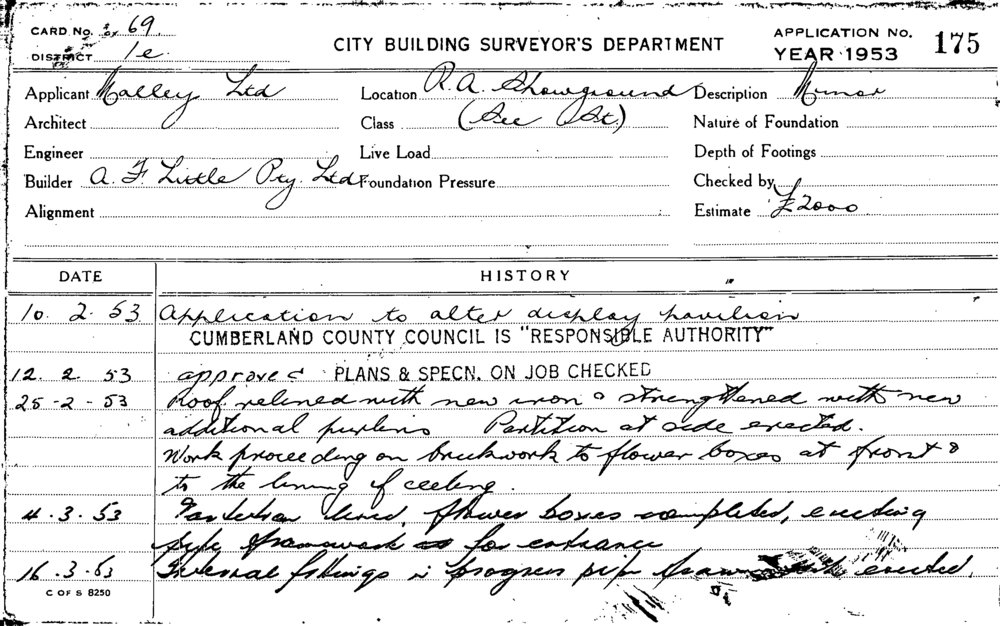 CARD No. 69.
DISTRICT 1e
CITY BUILDING SURVEYOR'S DEPARTMENT
APPLICATION No. 175
YEAR 1953
Applicant Malley Ltd
Location R.A. Showground
Description Minor
Architect
Class (See St.)
Nature of Foundation
Engineer
Live Load
Depth of Footings
Builder A. F. Little Pty. Ltd
Foundation Pressure
Checked by
Alignment
Estimate £2000
DATE HISTORY
10. 2. 53 Application to alter display pavilion
CUMBERLAND COUNTY COUNCIL IS "RESPONSIBLE AUTHORITY"
12. 2. 53 approved PLANS & SPECN. ON JOB CHECKED
25-2-53 Roof relined with new iron & strengthened with new
additional purlins Partition at side erected.
Work proceeding on brickwork to flower boxes at front &
to the lining of ceeling.
4. 3. 53 Partition lined, flower boxes completed, erecting
pipe framework for entrance
16. 3. 53 Internal fittings in progress pipe framework erected.
C OF S 8250